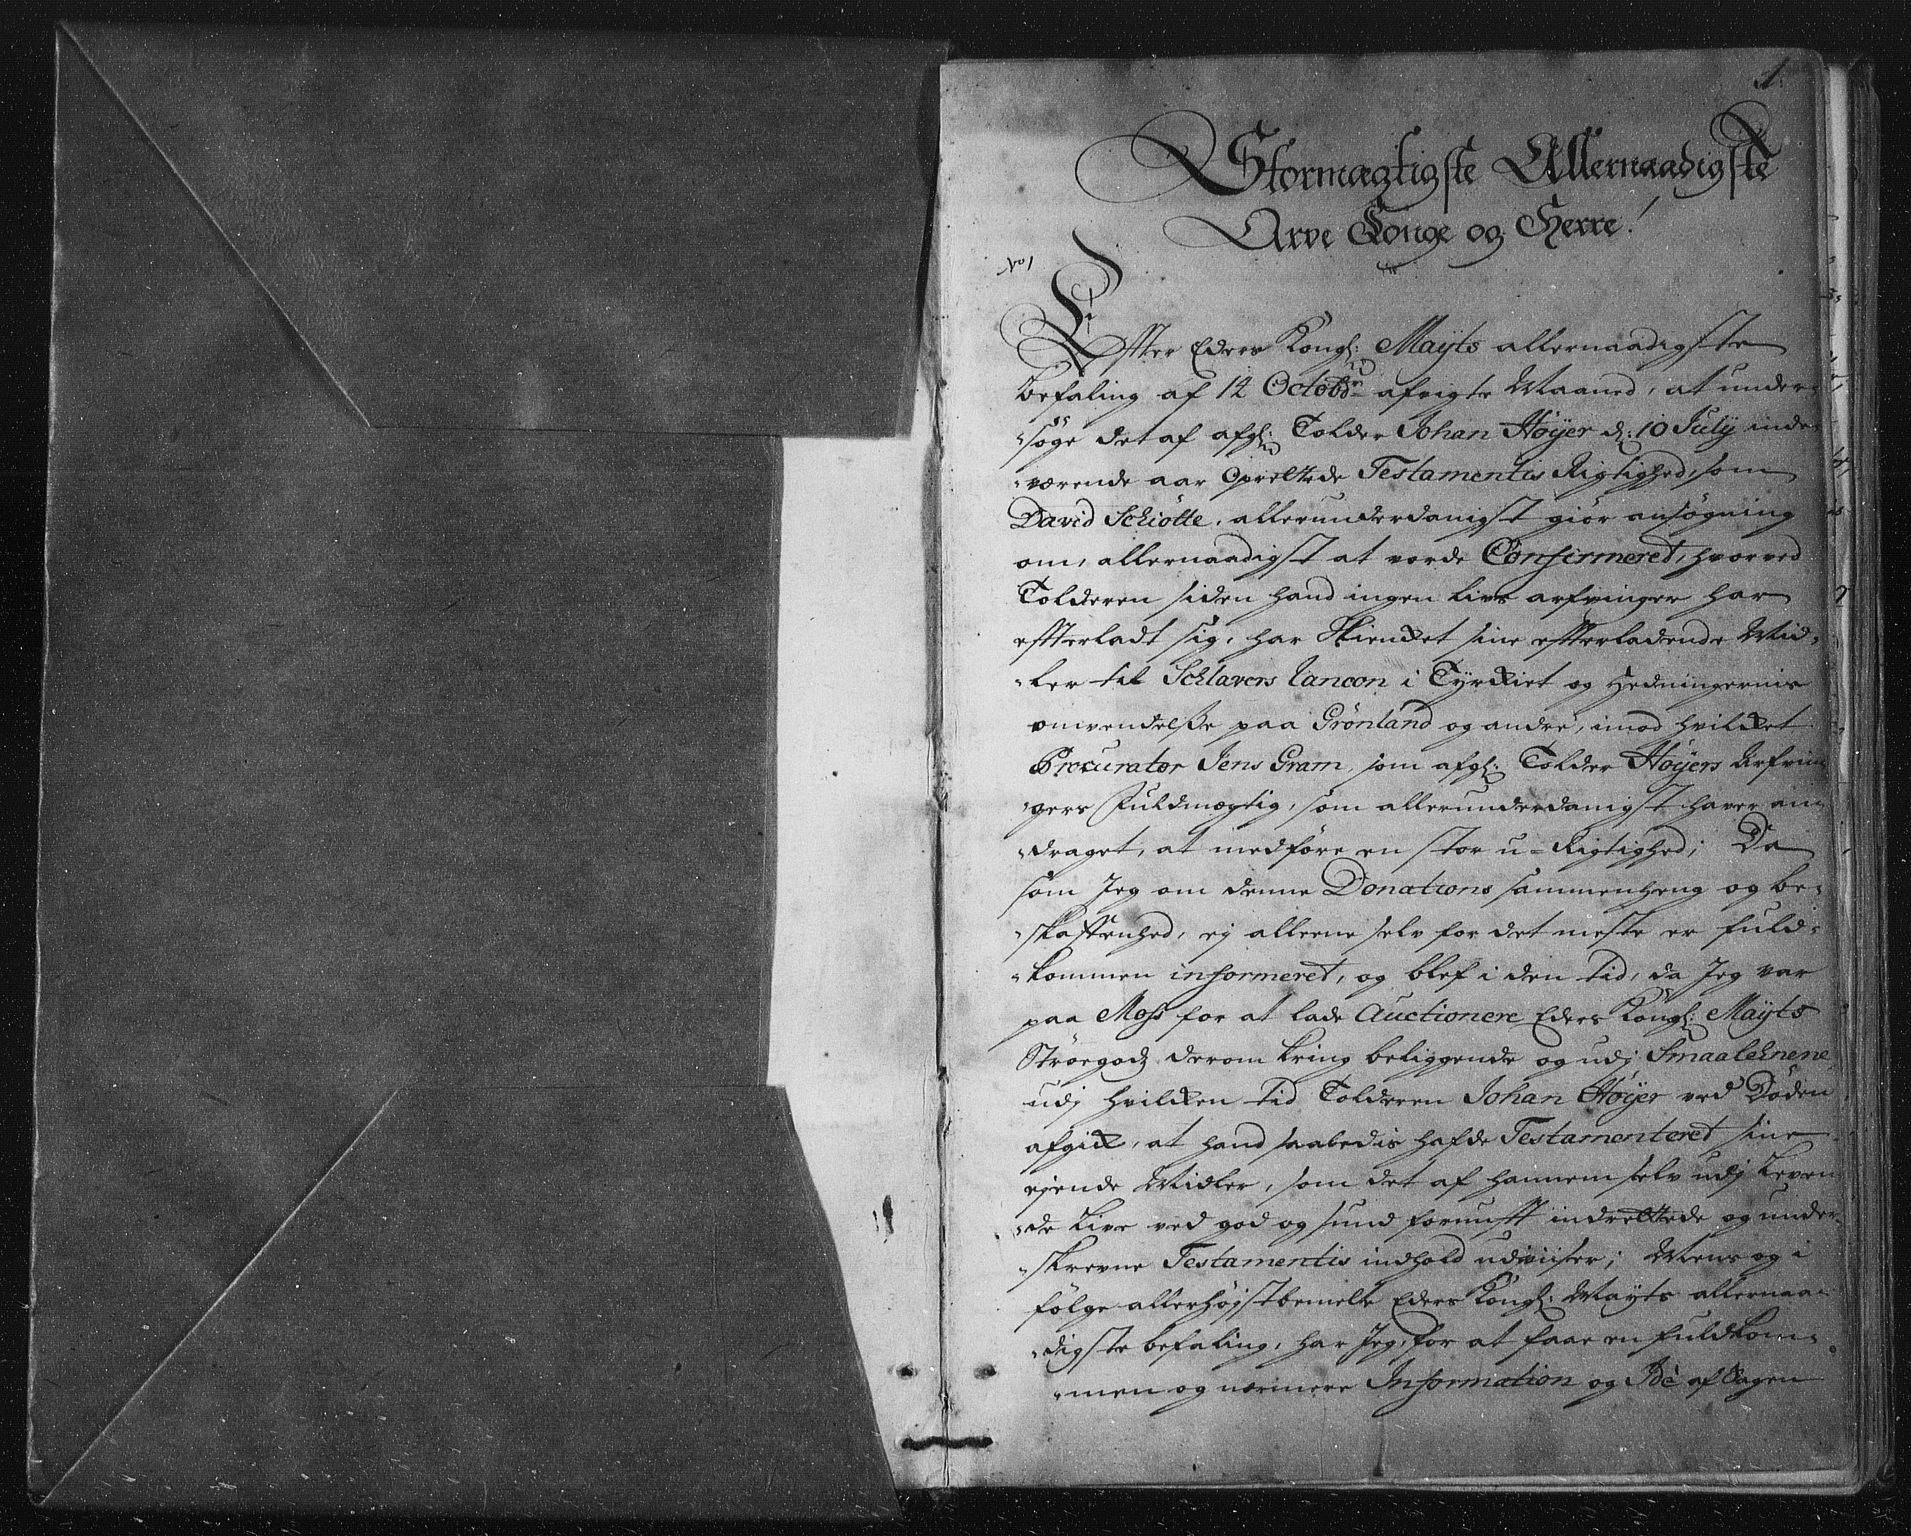 1.
Stormægtigste Allernaadigste
Arve Konge og Herre!
No 1
Efter Eders Kongl: Mayts allernaadigste
befaling af 14 Octobr afvigte Maaned, at under-
søge det af afgl: Tolder Johan Høÿer d: 10 Julÿ inde-
værende aar oprettede Testamentis Rigtighed, som
David Schiøtte, allerunderdanigst giør ansøgning
om, allernaadigst at vorde Confirmeret, hvorved
Tolderen siden hand ingen livs arfvinger har
effterladt sig, har skienket sine effterladende Mid-
ler til Schlavers Rancon i Tÿrkiet og Hedningernis
omvendelsse paa Grønland og andre, imod hvilket
Procurator Jens Gram, som afgl: Tolder Høÿers Arfvin-
gers Fuldmægtig, som allerunderdanigst haver an-
draget, at medføre en stor u-Rigtighed; Da
som Jeg om denne Donations sammenheng og be-
skaffenhed, ej alleene selv for det meste er fuld-
kommen informeret, og blef i den tid, da Jeg var
paa Moss for at lade Auctionere Eders Kongl: Mayts
Strøegods deromkring beliggende og udj Smaalehnene
udj hvilken tid Tolderen Johan Høÿer ved Døden
afgik, at hand saaledis hafde Testamenteret sine
ejende Midler, som det af hannem selv udj Leven-
de Live ved god og sund fornufft indrettede og under-
skrevne Testamentis indhold udviiser; Mens og i
følge allerhøÿstbemelte Eders Kongl: Mayts allernaa-
digste befaling, har Jeg, for at faae en fuldkom-
men og nærmere Information og Idè af Sagen